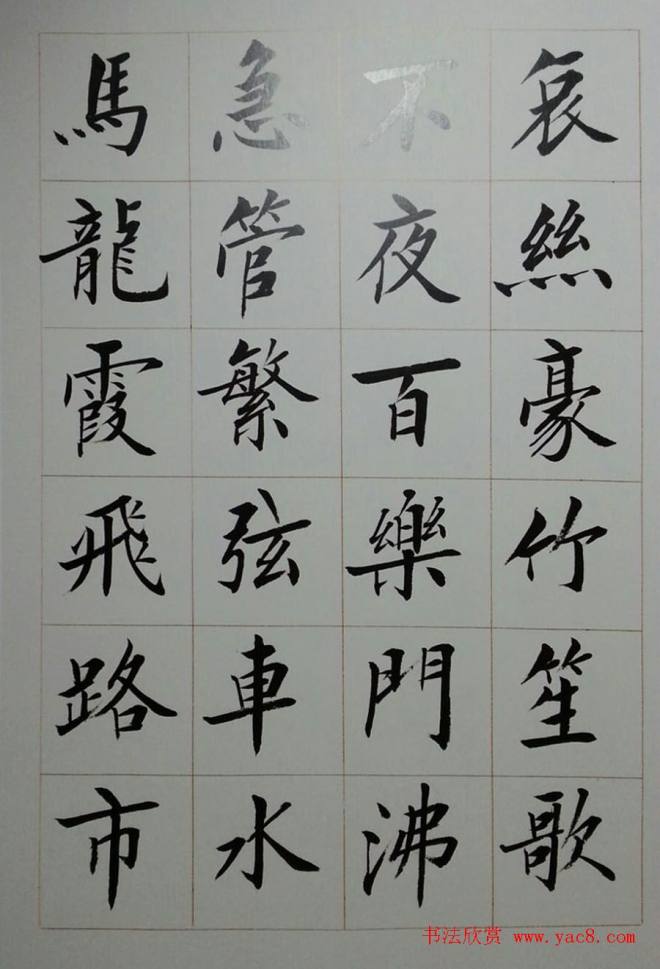 哀絲豪竹笙歌
不夜百樂門沸
急管繁弦車水
馬龍霞飛路市
书法欣赏 www.yac8.com